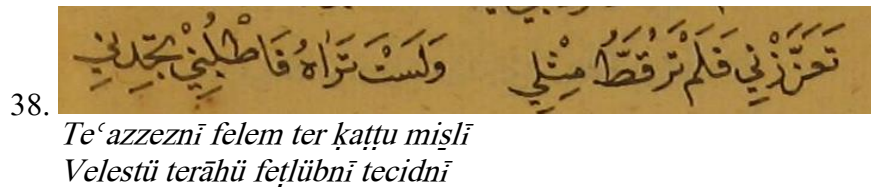 38. تَعَزَّزْنِي فَلَمْ تَرَ قَطُّ مِثْلِي وَلَسْتَ تَرَاهُ فَاطْلُبْنِي تَجِدْنِي
Teʿazzeznī felem ter ḳaṭṭu mis̱lī
Velestü terāhü feṭlübnī tecidnī